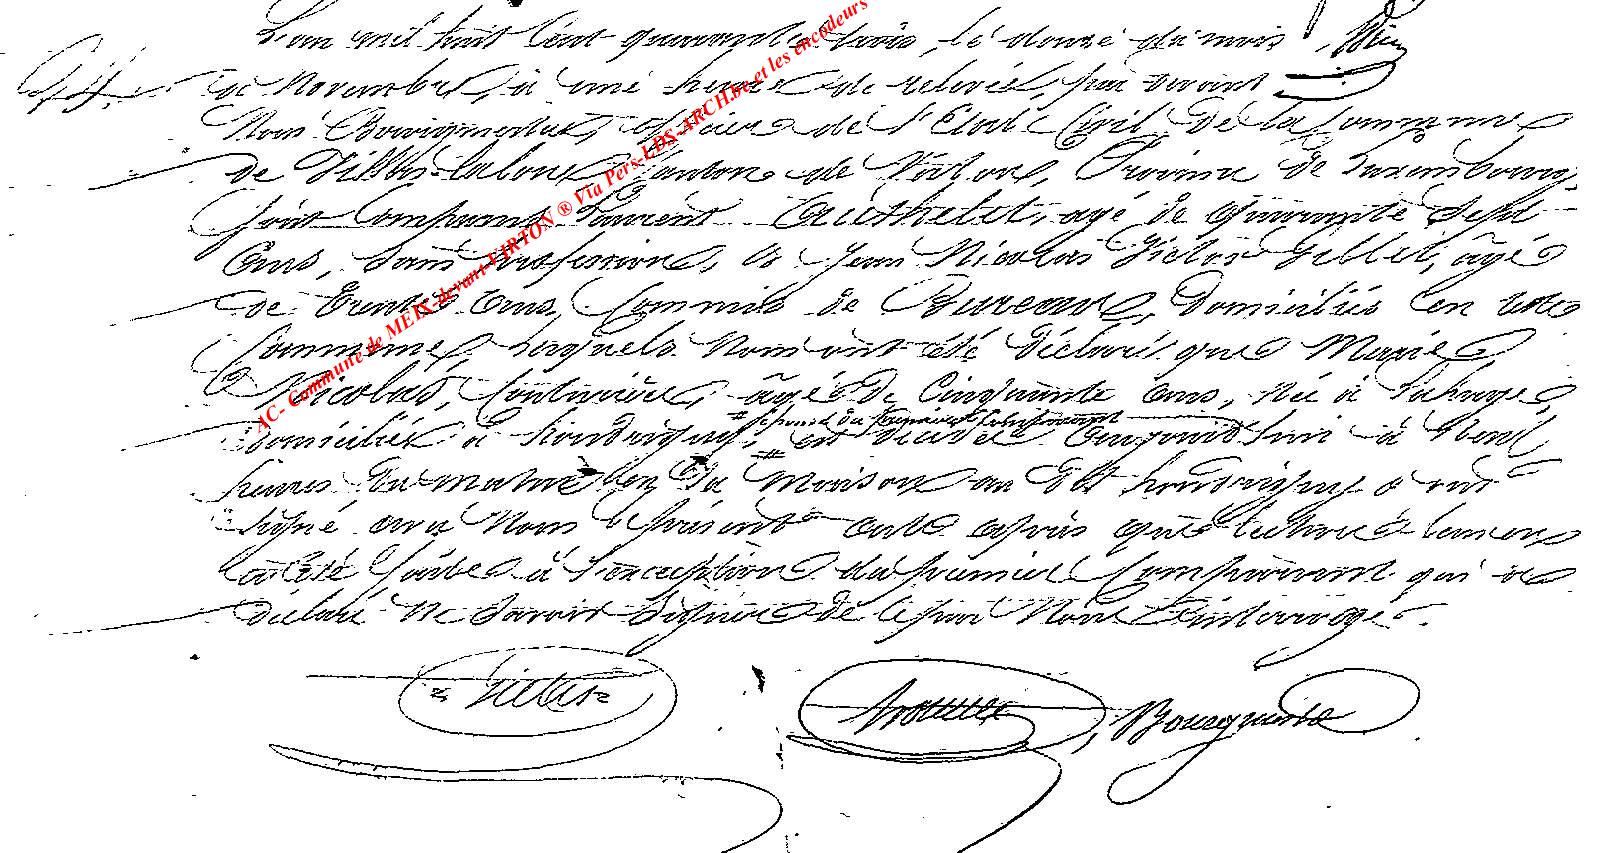 L'an mil huit Cent quarante trois, le douze du mois
de Novembre, à une heure de relevée, par devant
Nous Bourguignon, officier de l'Etat Civil de la Commune
de Villers-la-loue, Canton de Virton, Province de Luxembourg,
sont Comparus Laurent agé de Quarante Sept
Ans, sans profession, & Jean Nicolas Victor Gillet, âgé
de Trente Ans, Commis de Bureau, Domiciliés en cette
Commune, Lesquels Nous ont été déclaré que Marie
Nicolas, Couturière, âgée de Cinquante ans, née à Lahage,
domiciliée à houdrigny, est décédée Aujourd'hui à Neuf
# du premier Comparant
heures du matin en sa Maison au dit houdrigny & ont
signé avec Nous le présent acte après que lecture leur en
a été faite à l'exception du premier Comparant qui a
déclaré ne Savoir Signer de ce par Nous interrogé.
AC- Commune de MEIX-devant-VIRTON ® Via Pers-LDS-ARCH.be et les encodeurs